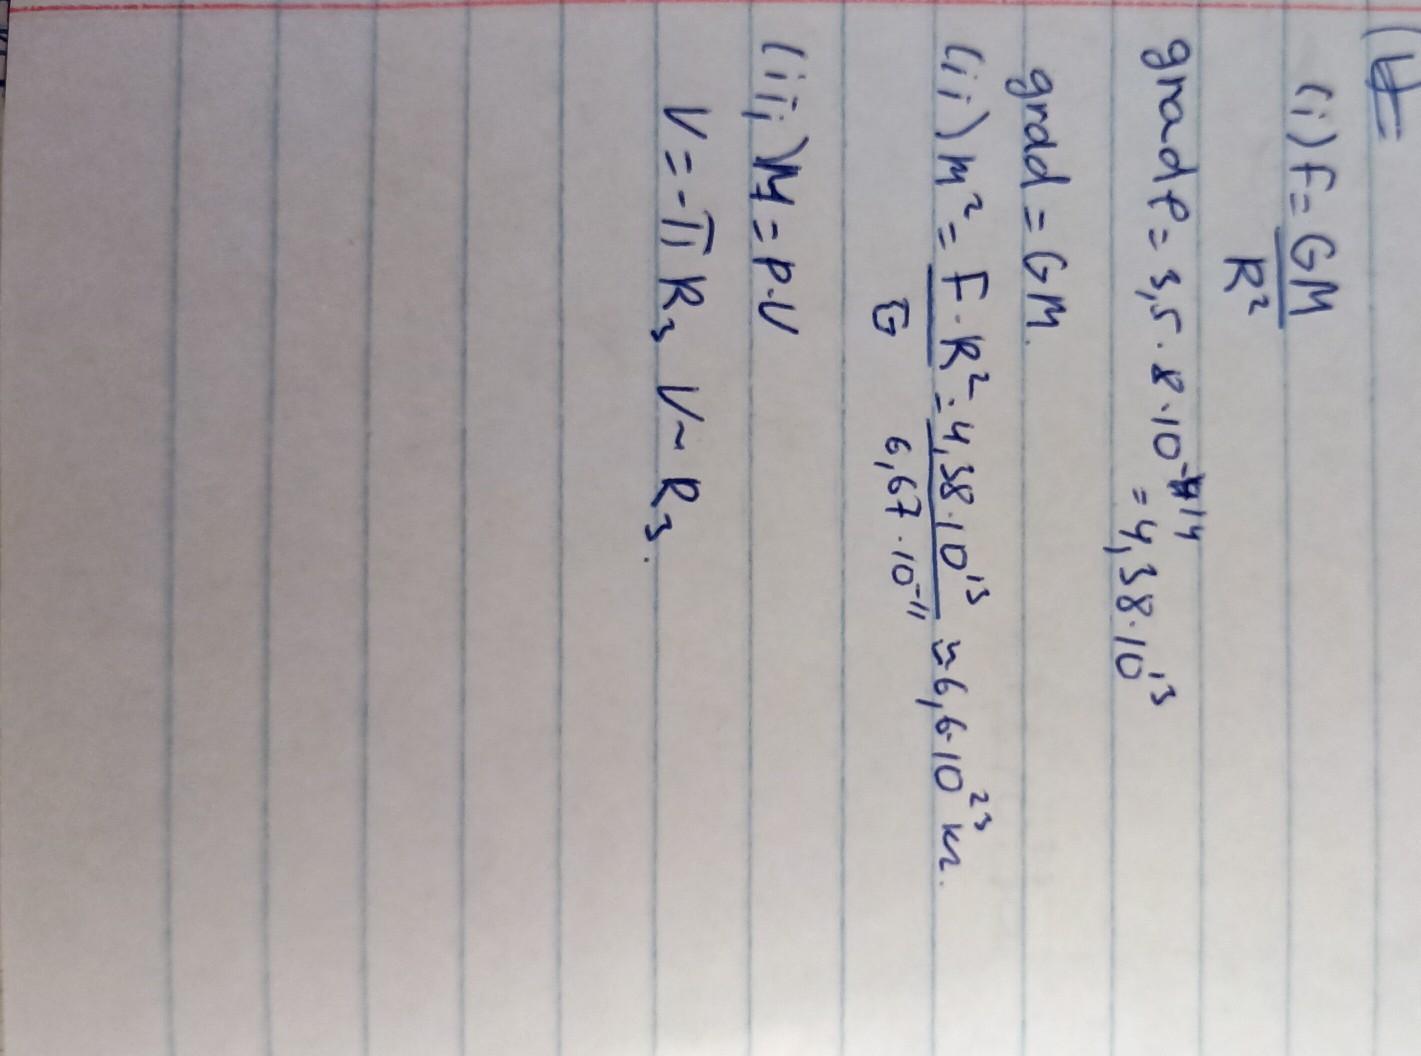 (i) F = GM / R²
grad e = 3,5 · 8 · 10⁻¹⁴ = 4,38 · 10¹³
grad = GM.
(ii) m² = F · R² / G = 4,38 · 10¹³ / 6,67 · 10⁻¹¹ ≈ 6,6 · 10²³ кг.
(iii) M = P · V
V = -π R₃ V ~ R₃.